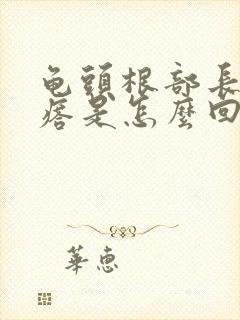 龟頭根部長
痞是怎麼回
華惠